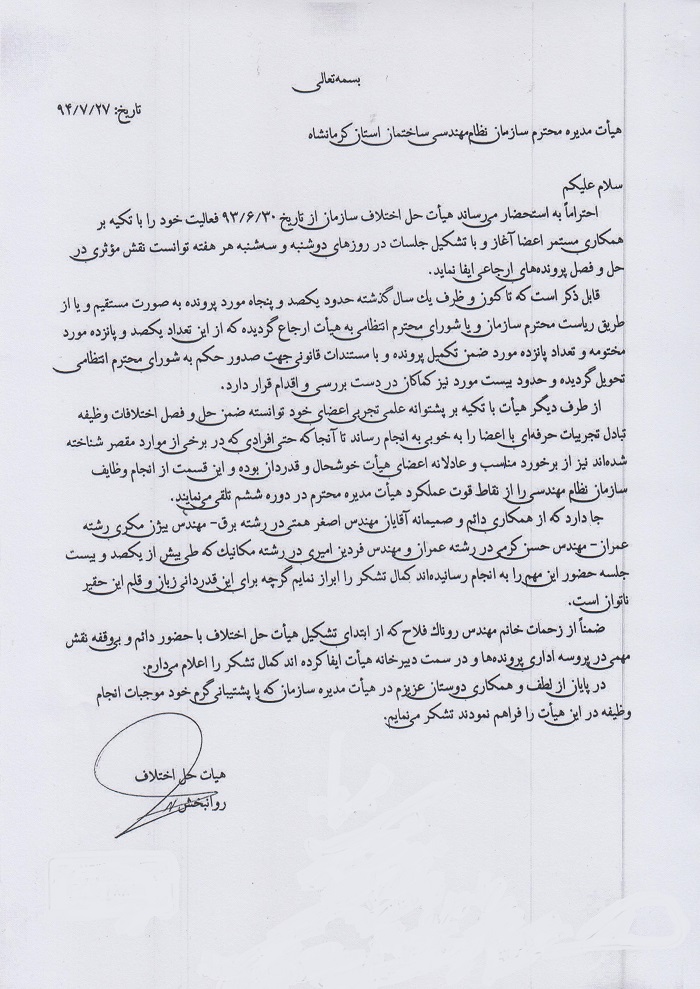 بسمه‌تعالی
تاریخ: ۹۴/۷/۲۷
هیأت مدیره محترم سازمان نظام‌مهندسی ساختمان استان کرمانشاه
سلام علیکم
احتراماً به استحضار می‌رساند هیأت حل اختلاف سازمان از تاریخ ۹۳/۶/۳۰ فعالیت خود را با تکیه بر
همکاری مستمر اعضا آغاز و با تشکیل جلسات در روزهای دوشنبه و سه‌شنبه هر هفته توانست نقش مؤثری در
حل و فصل پرونده‌های ارجاعی ایفا نماید.
قابل ذکر است که تاکنون و ظرف یك سال گذشته حدود یکصد و پنجاه مورد پرونده به صورت مستقیم و یا از
طریق ریاست محترم سازمان و یا شورای محترم انتظامی به هیأت ارجاع گردیده که از این تعداد یکصد و پانزده مورد
مختومه و تعداد پانزده مورد ضمن تکمیل پرونده و با مستندات قانونی جهت صدور حکم به شورای محترم انتظامی
تحویل گردیده و حدود بیست مورد نیز کماکان در دست بررسی و اقدام قرار دارد.
از طرف دیگر هیأت با تکیه بر پشتوانه علمی تجربی اعضای خود توانسته ضمن حل و فصل اختلافات وظیفه
تبادل تجربیات حرفه‌ای با اعضا را به خوبی به انجام رساند تا آنجا که حتی افرادی که در برخی از موارد مقصر شناخته
شده‌اند نیز از برخورد مناسب و عادلانه اعضای هیأت خوشحال و قدردان بوده و این قسمت از انجام وظایف
سازمان نظام مهندسی را از نقاط قوت عملکرد هیأت مدیره محترم در دوره ششم تلقی می‌نمایند.
جا دارد که از همکاری دائم و صمیمانه آقایان مهندس اصغر همتی در رشته برق- مهندس بیژن مکری رشته
عمران- مهندس حسن کرمی در رشته عمران و مهندس فردین امیری در رشته مکانیك که طی بیش از یکصد و بیست
جلسه حضور این مهم را به انجام رسانیده‌اند کمال تشکر را ابراز نمایم گرچه برای این قدردانی زبان و قلم این حقیر
ناتوان است.
ضمناً از زحمات خانم مهندس روناك فلاح که از ابتدای تشکیل هیأت حل اختلاف با حضور دائم و بی‌وقفه نقش
مهمی در پروسه اداری پرونده‌ها و در سمت دبیرخانه هیأت ایفا کرده اند کمال تشکر را اعلام می‌دارم.
در پایان از لطف و همکاری دوستان عزیزم در هیأت مدیره سازمان که با پشتیبانی گرم خود موجبات انجام
وظیفه در این هیأت را فراهم نمودند تشکر می‌نمایم.
هیات حل اختلاف
روانبخش